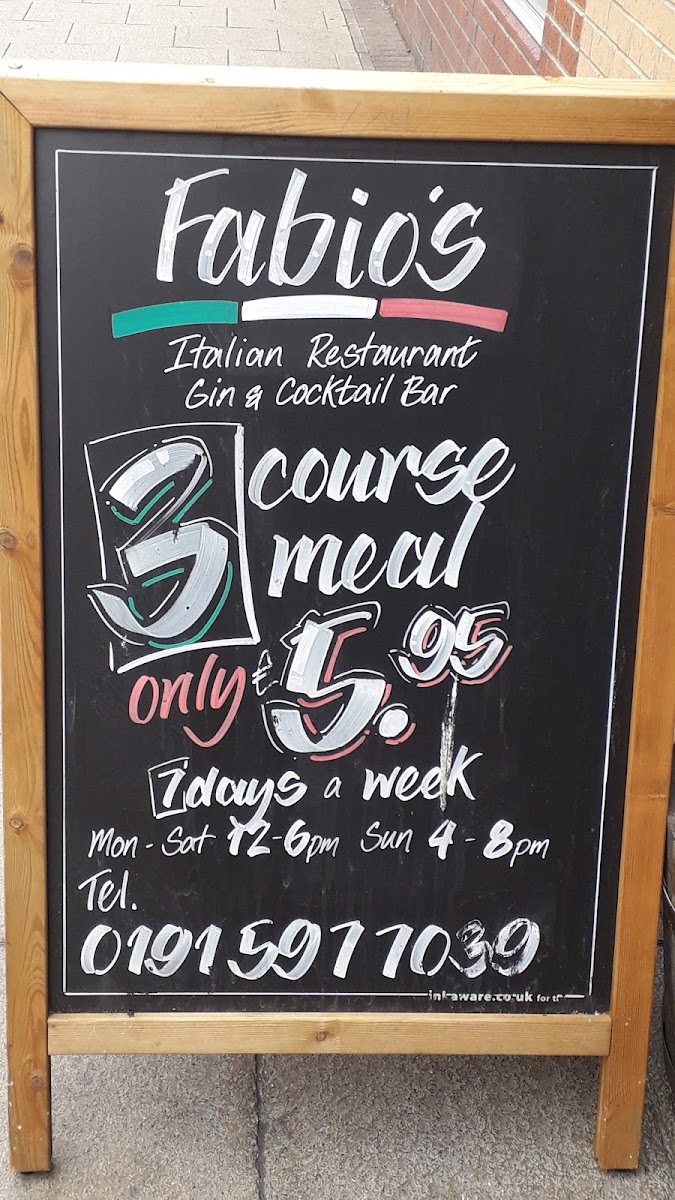 Fabio's
Italian Restaurant
Gin & Cocktail Bar
3 course
meal
only £5.95
7 days a week
Mon - Sat 12-6pm Sun 4-8pm
Tel.
0191 597 7039